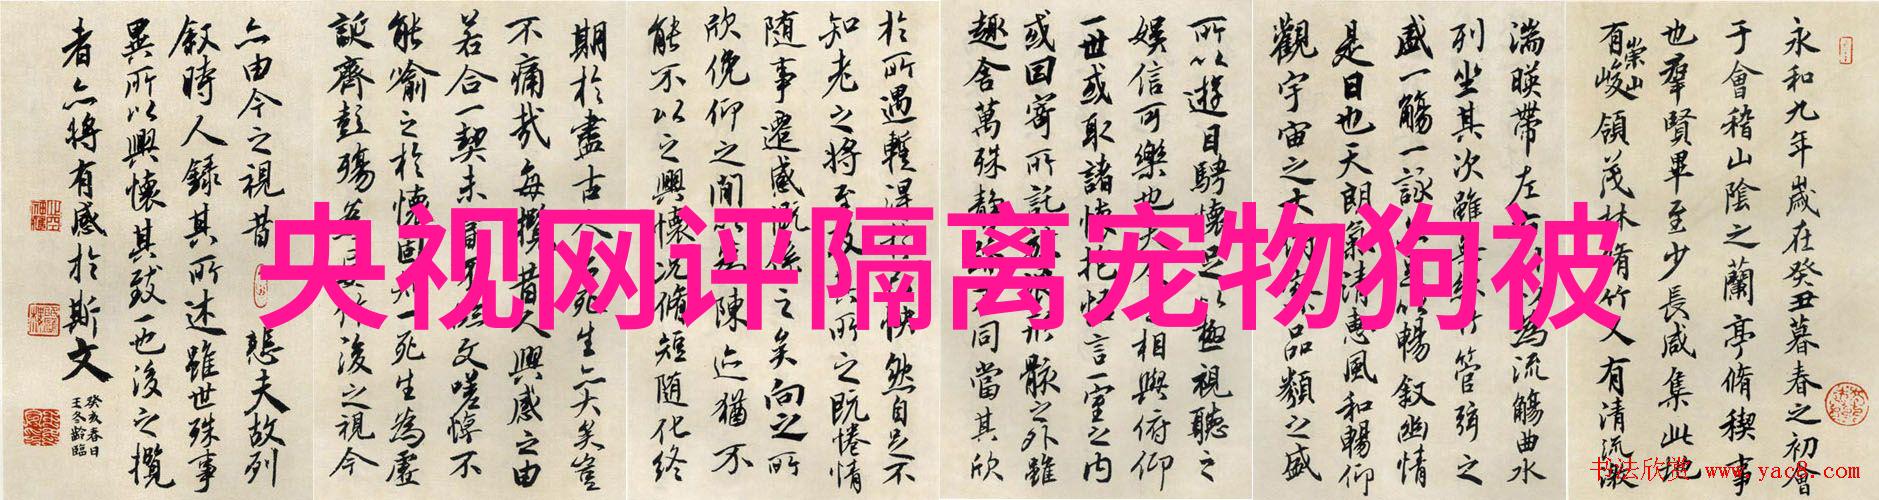 央视网评隔离宠物狗被
永和九年歲在癸丑暮春之初會
于會稽山陰之蘭亭脩稧事
也羣賢畢至少長咸集此地
有崇山峻領茂林脩竹又有清流激
湍暎帶左右引以為流觴曲水
列坐其次雖無絲竹管弦之
盛一觴一詠亦足以暢敘幽情
是日也天朗氣清惠風和暢仰
觀宇宙之大俯察品類之盛
所以遊目騁懷足以極視聽之
娛信可樂也夫人之相與俯仰
一世或取諸懷抱悟言一室之內
或因寄所託放浪形骸之外雖
趣舍萬殊靜躁不同當其欣
於所遇蹔得於己快然自足不
知老之將至及其所之既惓情
随事遷感慨係之矣向之所
欣俛仰之間以為陳迹猶不
能不以之興懷況脩短随化終
期於盡古人云死生亦大矣豈
不痛哉每攬昔人興感之由
若合一契未嘗不臨文嗟悼不
能喻之於懷固知一死生為虛
誕齊彭殤為妄作後之視今
亦由今之視昔悲夫故列
敘時人錄其所述雖世殊事
異所以興懷其致一也後之攬
者亦將有感於斯文
癸亥春日
王冬齡臨
书法欣赏 www.yac8.com